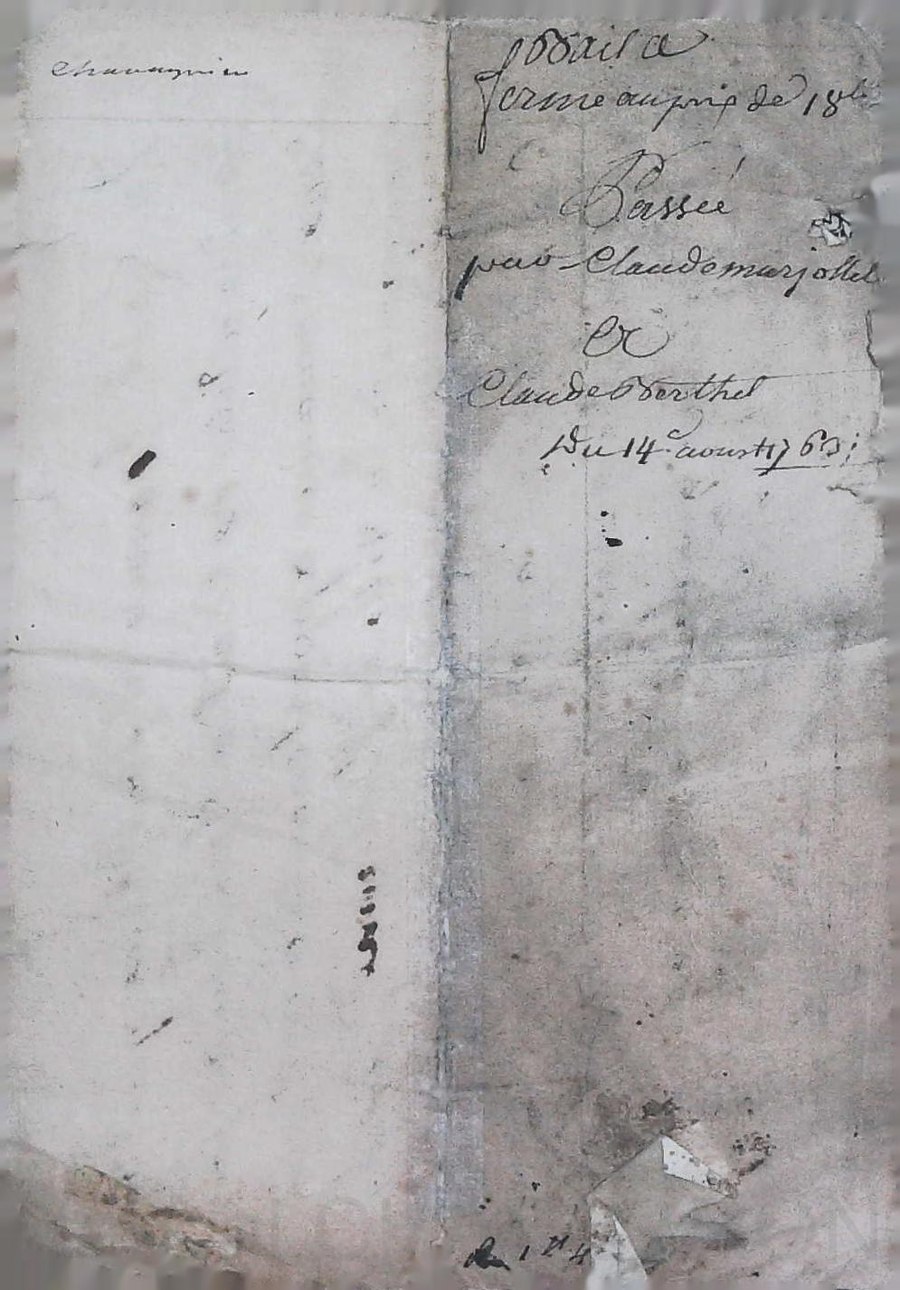 Chavagnieu
Bail a
ferme au prix de 18lt
Passeé
par Claude marjollet
Et
Claude Berthet
Du 14e aoust 1763
R 1lt 4